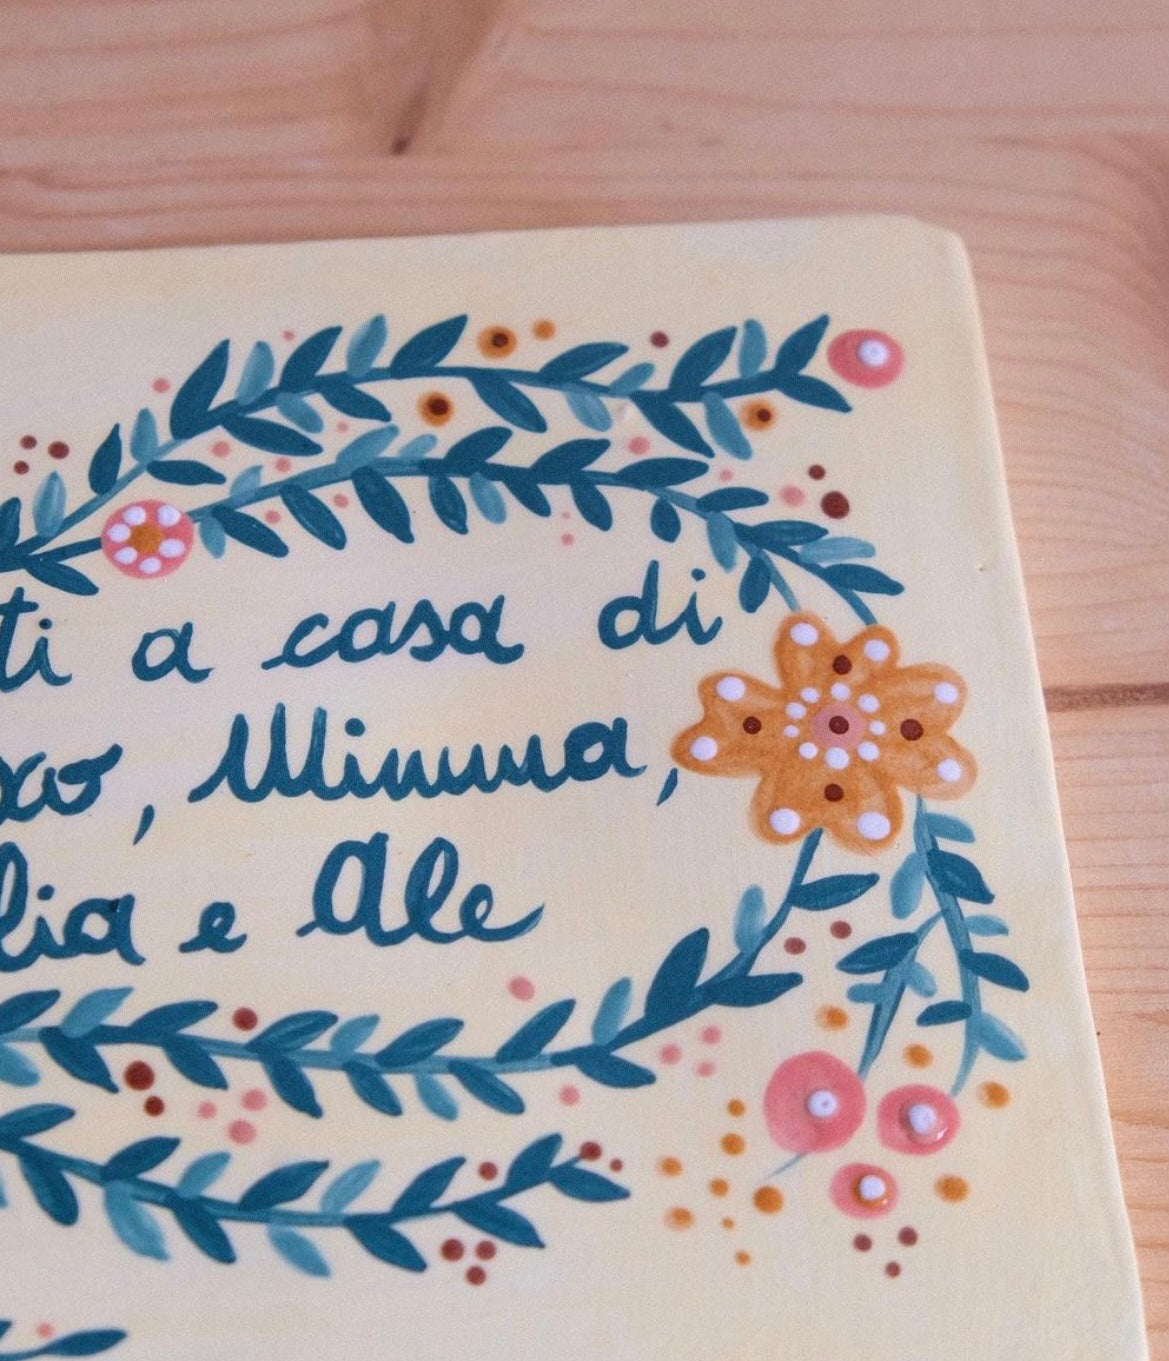 ti a casa di
, Mimma,
lia e Ale